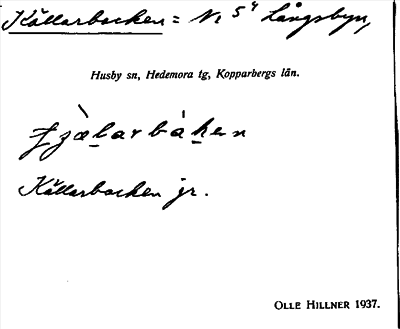 Källarbacken = N. 5⁴ Långsbyn,
Husby sn, Hedemora tg, Kopparbergs län.
Källarbacken jr.
OLLE HILLNER 1937.